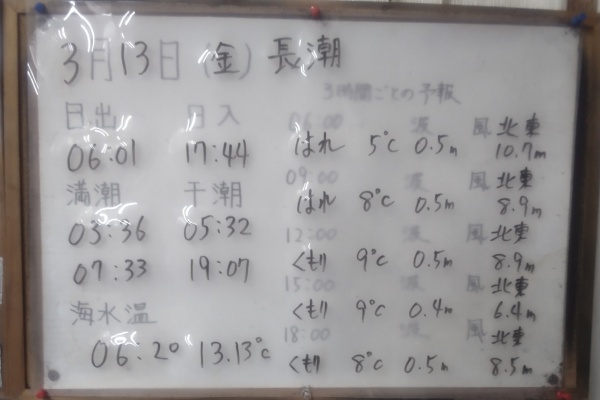 3月13日(金)長潮
日出 日入
06:01 17:44
満潮 干潮
03:36 05:32
07:33 19:07
海水温
06:20 13.13℃
3時間ごとの予報
06:00 波 風 北東
はれ 5℃ 0.5m 10.7m
09:00 波 風 北東
はれ 8℃ 0.5m 8.9m
12:00 波 風 北東
くもり 9℃ 0.5m 8.9m
15:00 波 風 北東
くもり 9℃ 0.4m 6.4m
18:00 波 風 北東
くもり 8℃ 0.5m 8.5m